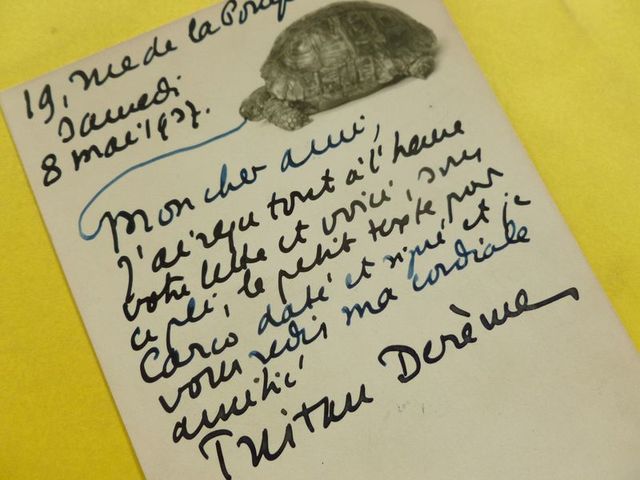 19, rue de la Pomp
Samedi
8 mai 1937.
Mon cher ami,
J'ai reçu tout à l'heure
votre lettre et voici, sous
ce pli, le petit texte pour
Carco daté et signé et je
vous redis ma cordiale
amitié
Tristan Derème